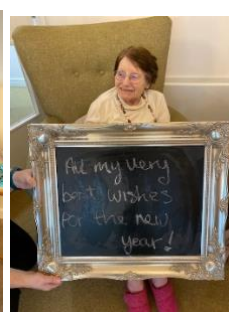 All my very
best wishes
for the new
year!